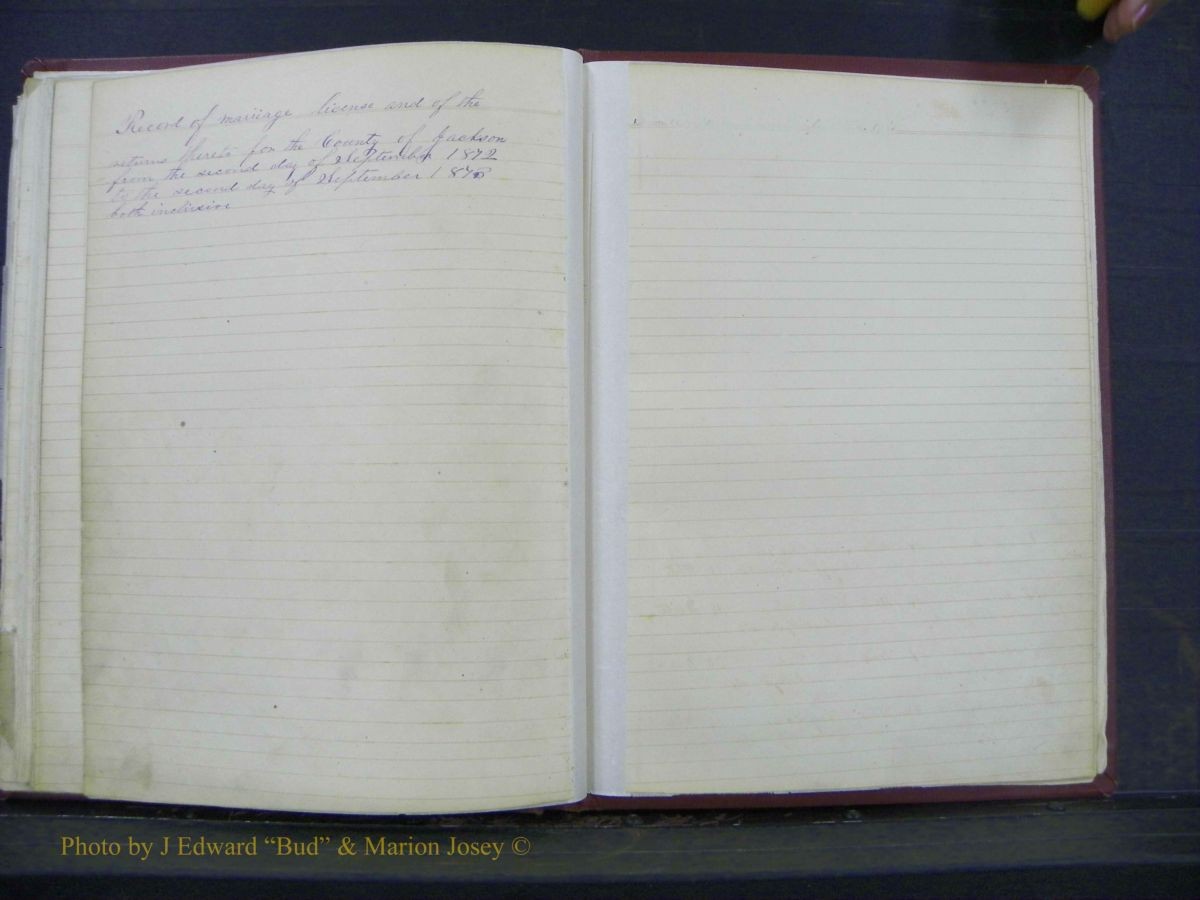 Record of mariiage license and of the
returns thereto for the County of Jackson
from the second day of September 1872
to the second day of September 1873
both inclusive
Photo by J Edward “Bud” & Marion Josey ©